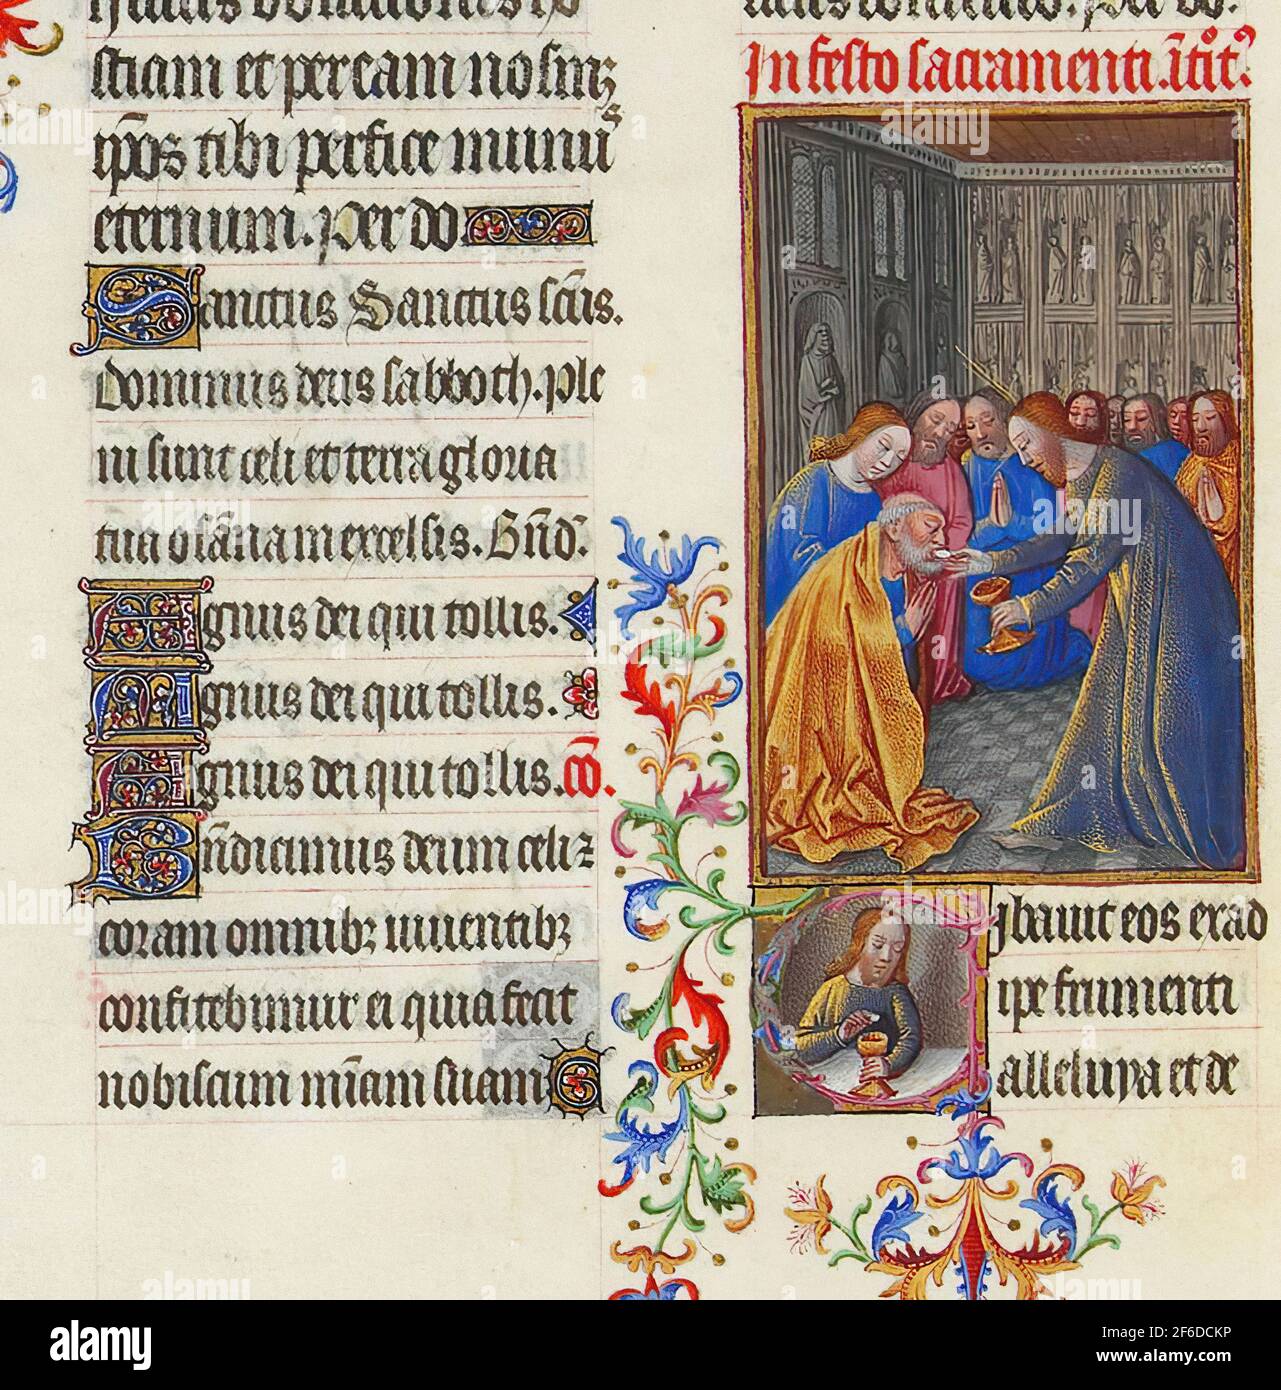 sticam et percam nosmz
ip̄os tibi perfice munu᷒
eternum. Per do
Sanctus Sanctus sc̄us.
dominus deus sabboth. ple
ni sunt celi et terra gloria
tua osāna in excelsis. Bn̄d.
Agnus dei qui tollis.
Agnus dei qui tollis.
Agnus dei qui tollis. cō.
Bn̄dicimus deum celi ⁊
coram omnibꝫ uiuentibꝫ
confitebimur ei quia fecit
nobiscum mīam suam
In festo sacramenti. ītͦitꝰ
Cibauit eos exad
ipe frumenti
alleluya et de
alamy
Image ID: 2F6DCKP
www.alamy.com